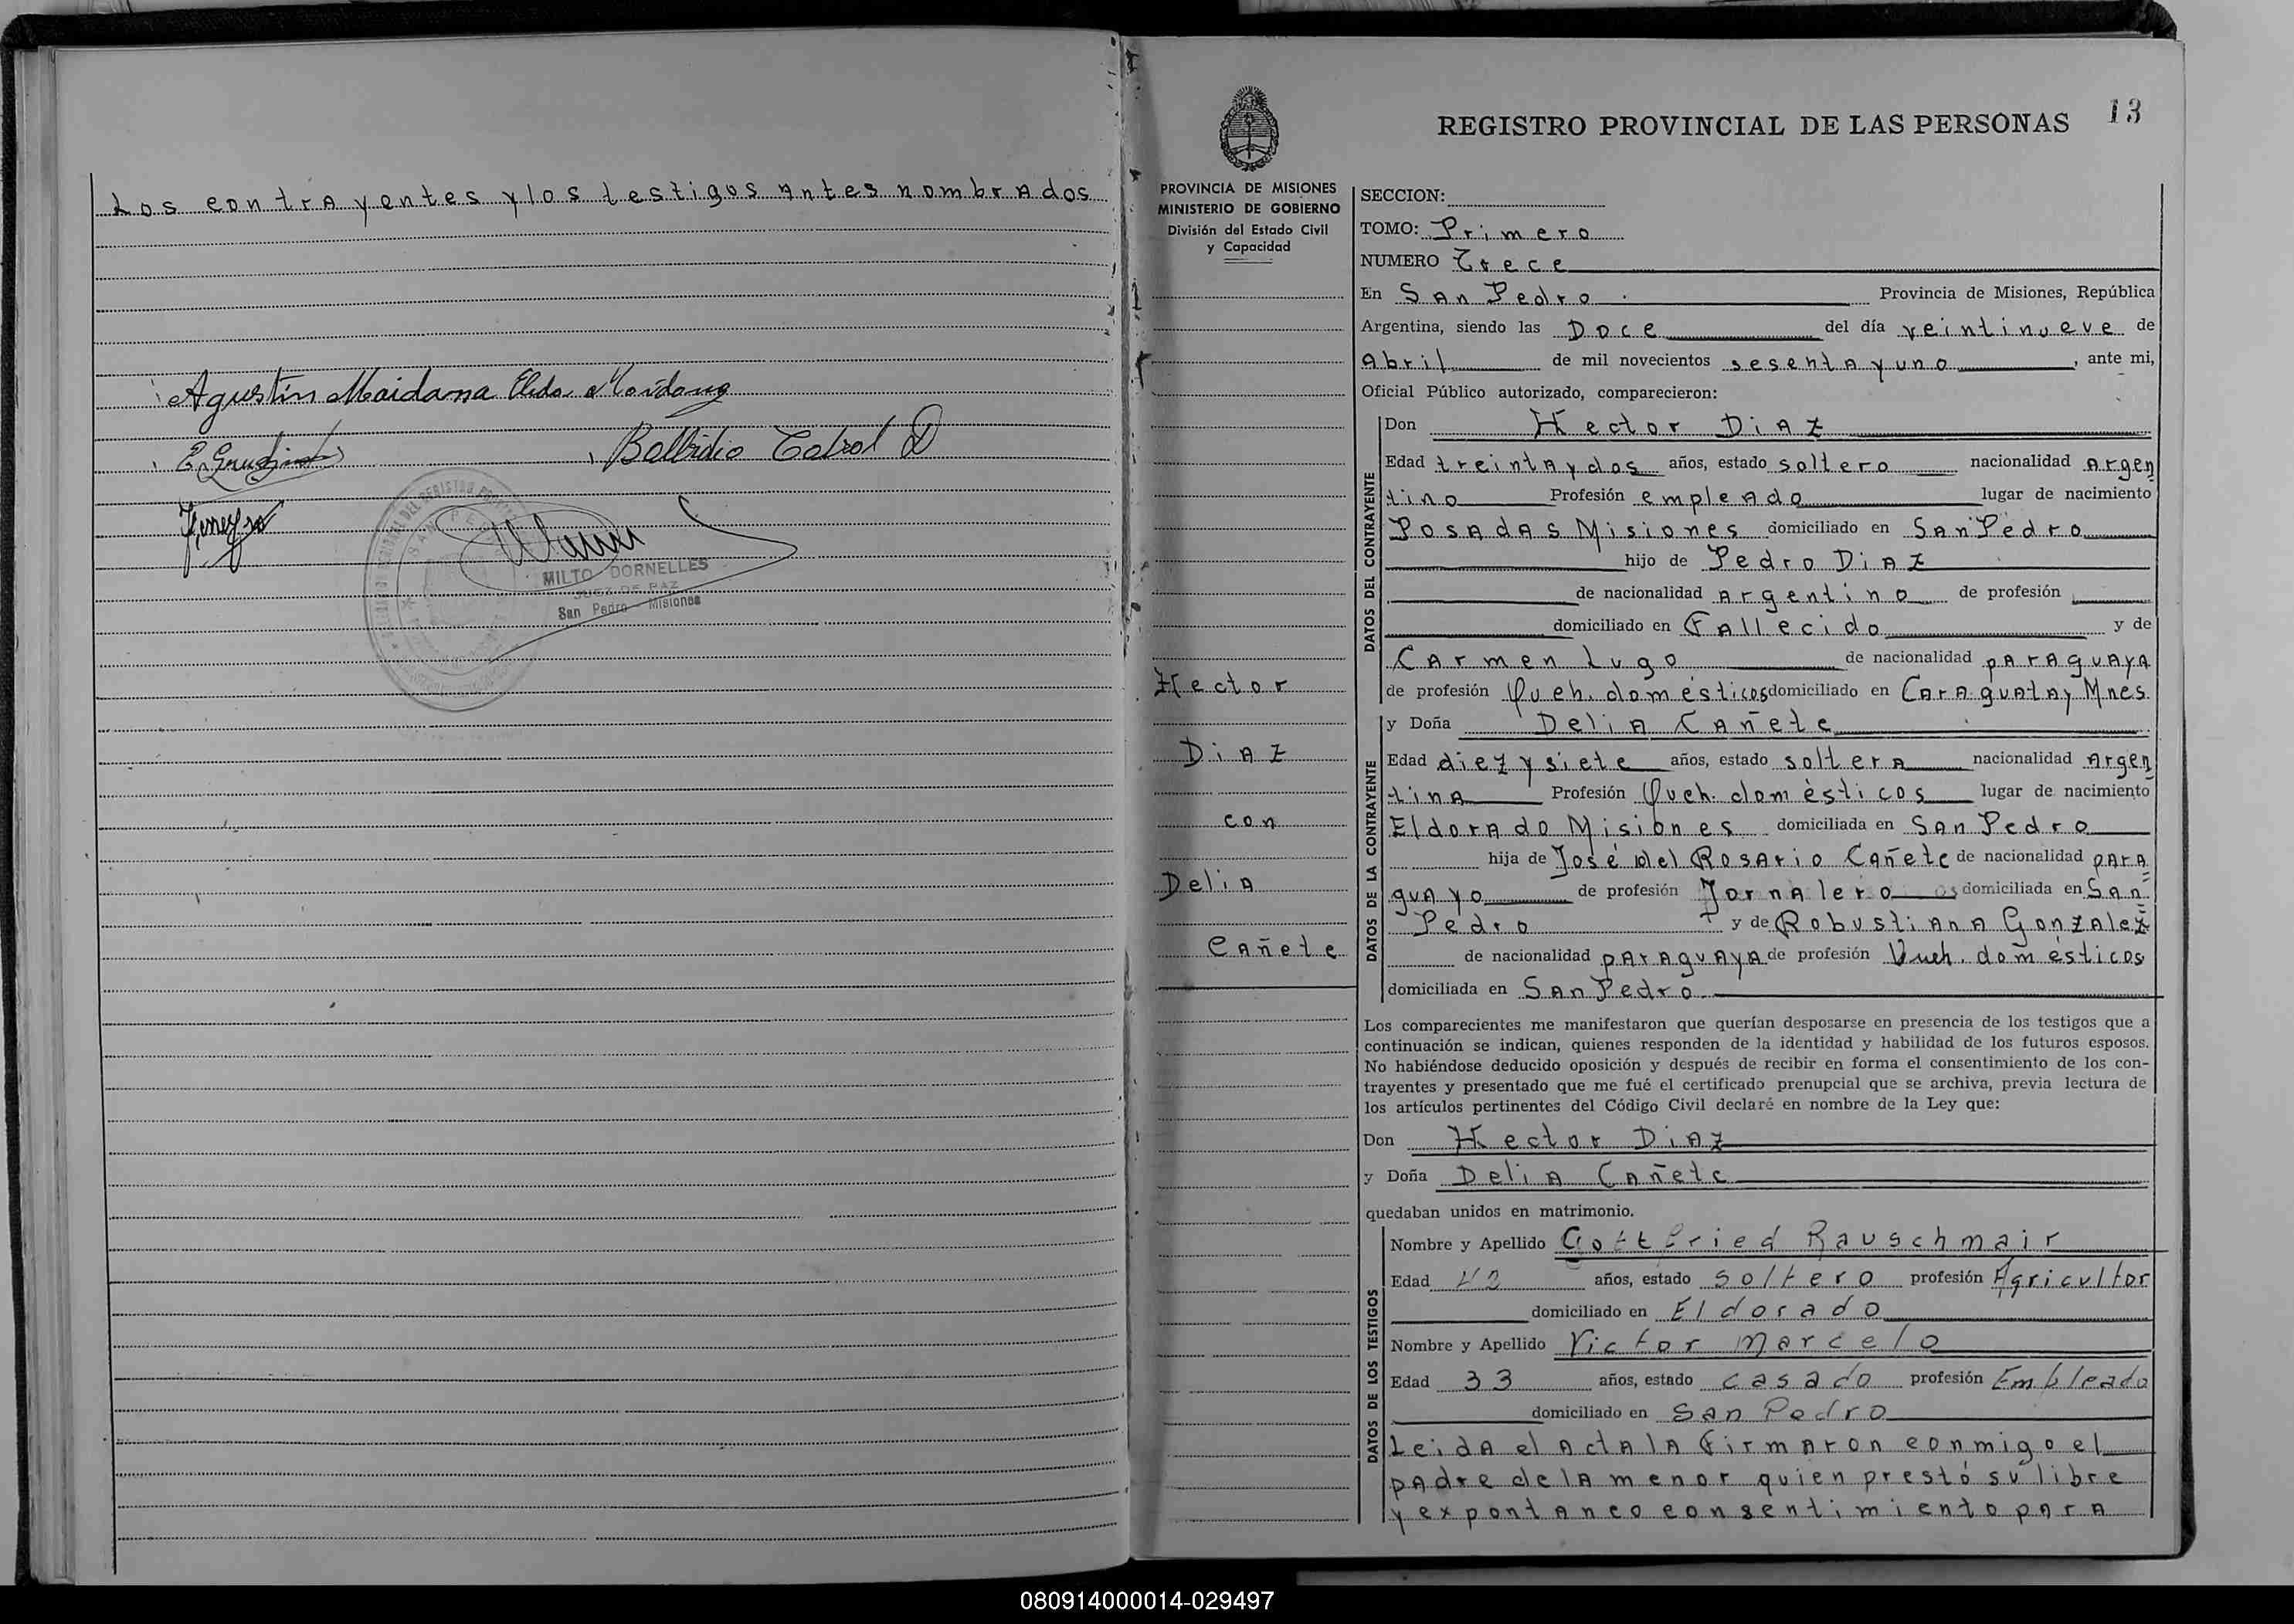 Los contrayentes y los testigos antes nombrados
Agustín Maidana Elida Maidana
Ballidio Cabral
MILTO DORNELLES
JUEZ DE PAZ
San Pedro - Misiones
13
REGISTRO PROVINCIAL DE LAS PERSONAS
PROVINCIA DE MISIONES
MINISTERIO DE GOBIERNO
División del Estado Civil
y Capacidad
Hector
Diaz
con
Delia
Cañete
SECCION:
TOMO: Primero
NUMERO Trece
En San Pedro Provincia de Misiones, República
Argentina, siendo las Doce del día veintinueve de
Abril de mil novecientos sesenta y uno, ante mi,
Oficial Público autorizado, comparecieron:
DATOS DEL CONTRAYENTE
Don Hector Diaz
Edad treinta y dos años, estado soltero nacionalidad Argen
tino Profesión empleado lugar de nacimiento
Posadas Misiones domiciliado en San Pedro
hijo de Pedro Diaz
de nacionalidad Argentino de profesión
domiciliado en Fallecido y de
Carmen Lugo de nacionalidad paraguaya
de profesión Queh. domésticos domiciliado en Caraguatay Mnes.
DATOS DE LA CONTRAYENTE
y Doña Delia Cañete
Edad diez y siete años, estado soltera nacionalidad Argen
tina Profesión Queh. domésticos lugar de nacimiento
Eldorado Misiones domiciliada en San Pedro
hija de José del Rosario Cañete de nacionalidad para
guayo de profesión Jornalero domiciliada en San
Pedro y de Robustiana Gonzalez
de nacionalidad paraguaya de profesión Queh. domésticos
domiciliada en San Pedro
Los comparecientes me manifestaron que querían desposarse en presencia de los testigos que a
continuación se indican, quienes responden de la identidad y habilidad de los futuros esposos.
No habiéndose deducido oposición y después de recibir en forma el consentimiento de los con-
trayentes y presentado que me fué el certificado prenupcial que se archiva, previa lectura de
los artículos pertinentes del Código Civil declaré en nombre de la Ley que:
Don Hector Diaz
y Doña Delia Cañete
quedaban unidos en matrimonio.
DATOS DE LOS TESTIGOS
Nombre y Apellido Gottfried Rauschmair
Edad 42 años, estado soltero profesión Agricultor
domiciliado en Eldorado
Nombre y Apellido Victor Marcelo
Edad 33 años, estado casado profesión Embleado
domiciliado en San Pedro
Leida el acta la firmaron conmigo el
padre de la menor quien prestó su libre
y expontaneo consentimiento para
080914000014-029497